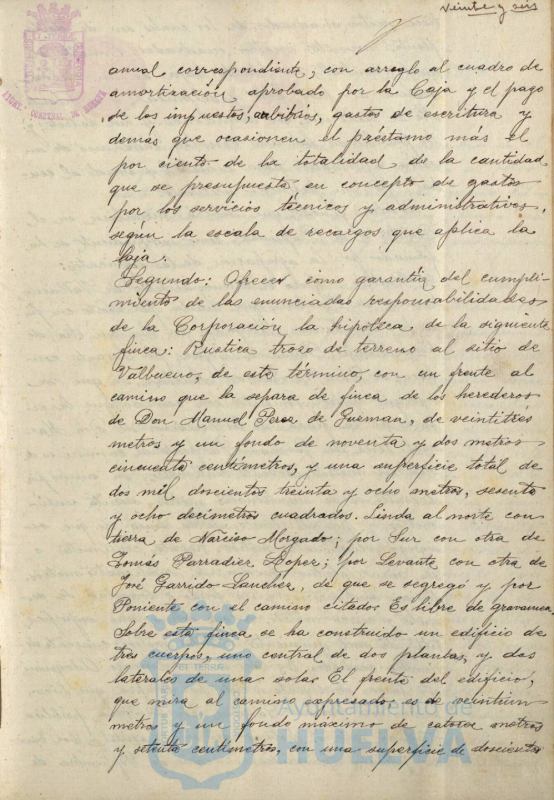 Veinte y seis
anual correspondiente, con arreglo al cuadro de
amortización aprobado por la Caja y el pago
de los impuestos, arbitrios, gastos de escritura y
demás que ocasionen el préstamo más el
por ciento de la totalidad de la cantidad
que se presupuesta en concepto de gastos
por los servicios técnicos y administrativos,
según la escala de recargos que aplica la
Caja.
Segundo: Ofrecer como garantía del cumpli-
miento de las enunciadas responsabilidades
de la Corporación la hipoteca de la siguiente
finca: Rustica troso de terreno al sitio de
Valbueno, de este término, con un frente al
camino que la separa de finca de los herederos
de Don Manuel Perez de Guzman, de veintitrés
metros y un fondo de noventa y dos metros
cincuenta centímetros, y una superficie total de
dos mil doscientos treinta y ocho metros, sesenta
y ocho decimetros cuadrados. Linda al norte con
tierra de Narciso Morgado; por Sur con otra de
Tomás Parradier Lopez; por Levante con otra de
José Garrido Sanchez, de que se segregó y por
Poniente con el camino citado. Es libre de gravamen.
Sobre esta finca se ha construido un edificio de
tres cuerpos, uno central de dos plantas, y dos
laterales de una sola. El frente del edificio,
que mira al camino expresado es de veintiun
metros y un fondo máximo de catorce metros
y setenta centímetros, con una superficie de doscientos
Ayuntamiento de
HUELVA